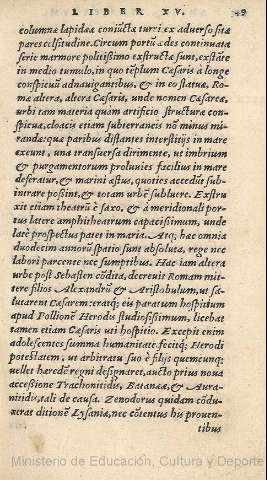 LIBER XV. 49
columnæ lapideæ coniũctæ turri ex aduerso sitæ
pares celsitudine. Circum portũ ædes continuata
serie marmore politissimo extructæ sunt, extãtẽ
in medio tumulo, in quo tẽplum Cæsaris à longe
conspicuũ adnauigantibus, & in eo statuæ, Ro-
ma altera, altera Cæsaris, unde nomen Cæsareæ,
urbi tam materia quàm artificio structuræ con-
spicuæ, cloacis etiam subterraneis nõ minus mi-
randæ: quæ paribus distantes interstitijs in mare
exeunt, una transuersa dirimente, ut imbrium
& purgamentorum proluuies facilius in mare
deferatur, & marini æstus, quoties accedũt sub-
intrare possint, & totam urbẽ subluere. Extru
xit etiam theatrũ è saxo, & à meridionali por-
tus latere amphitheatrum capacissimum, unde
latè prospectus patet in maria. Atq; hæc omnia
duodecim annorũ spatio sunt absoluta, rege nec
labori parcente nec sumptibus. Hac iam altera
urbe post Sebasten cõdita, decreuit Romam mit-
tere filios Alexandrũ & Aristobulum, ut sa-
lutarent Cæsarem: eratq; eis paratum hospitium
apud Pollionẽ Herodis studiosissimum, licebat
tamen etiam Cæsaris uti hospitio. Excepit enim
adolescentes summa humanitate, fecitq; Herodi
potestatem, ut arbitratu suo è filijs quemcunq;
uellet hæredẽ regni designaret, aucto prius noua
accessione Trachonitidis, Bataneæ, & Aura-
nitidis, tali de causa. Zenodorus quidam cõdu-
xerat ditionẽ Lysaniæ, nec cõtentus his prouen-
tibus
Ministerio de Educación, Cultura y Deporte